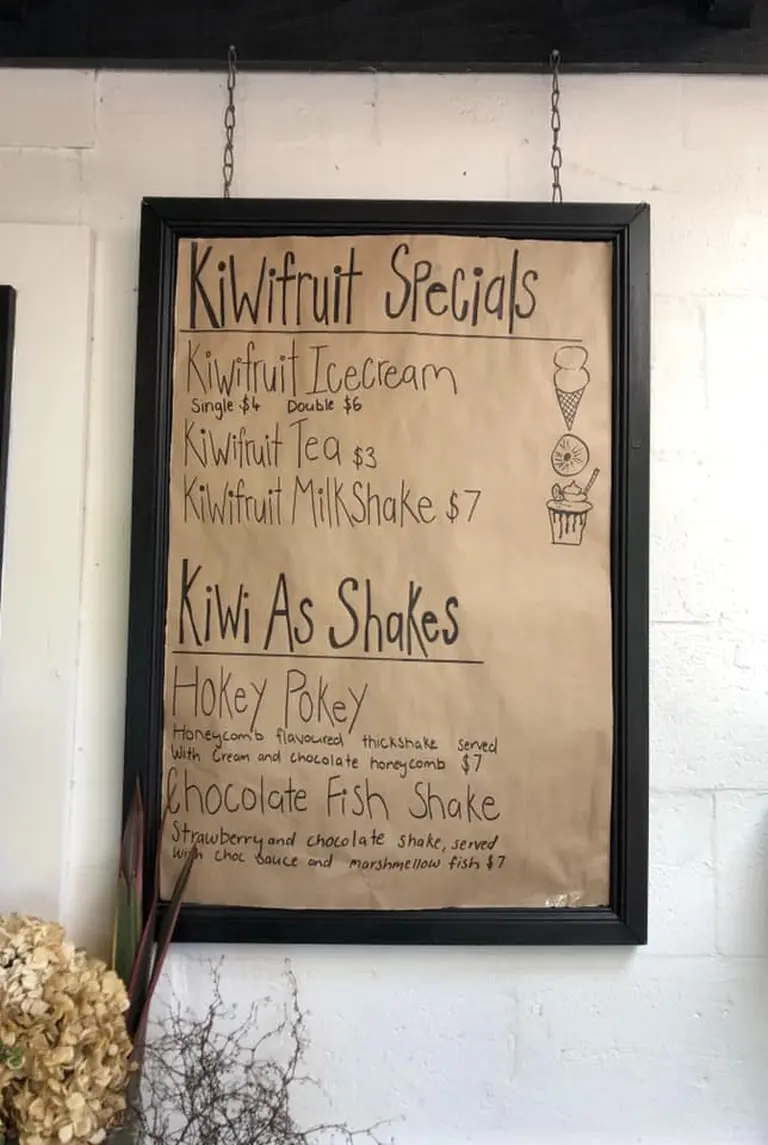 Kiwifruit Specials
Kiwifruit Icecream
Single $4 Double $6
Kiwifruit Tea $3
Kiwifruit MilkShake $7
Kiwi As Shakes
Hokey Pokey
Honeycomb flavoured thickshake served
with Cream and chocolate honeycomb $7
Chocolate Fish Shake
Strawberry and chocolate shake, served
with choc sauce and marshmellow fish $7